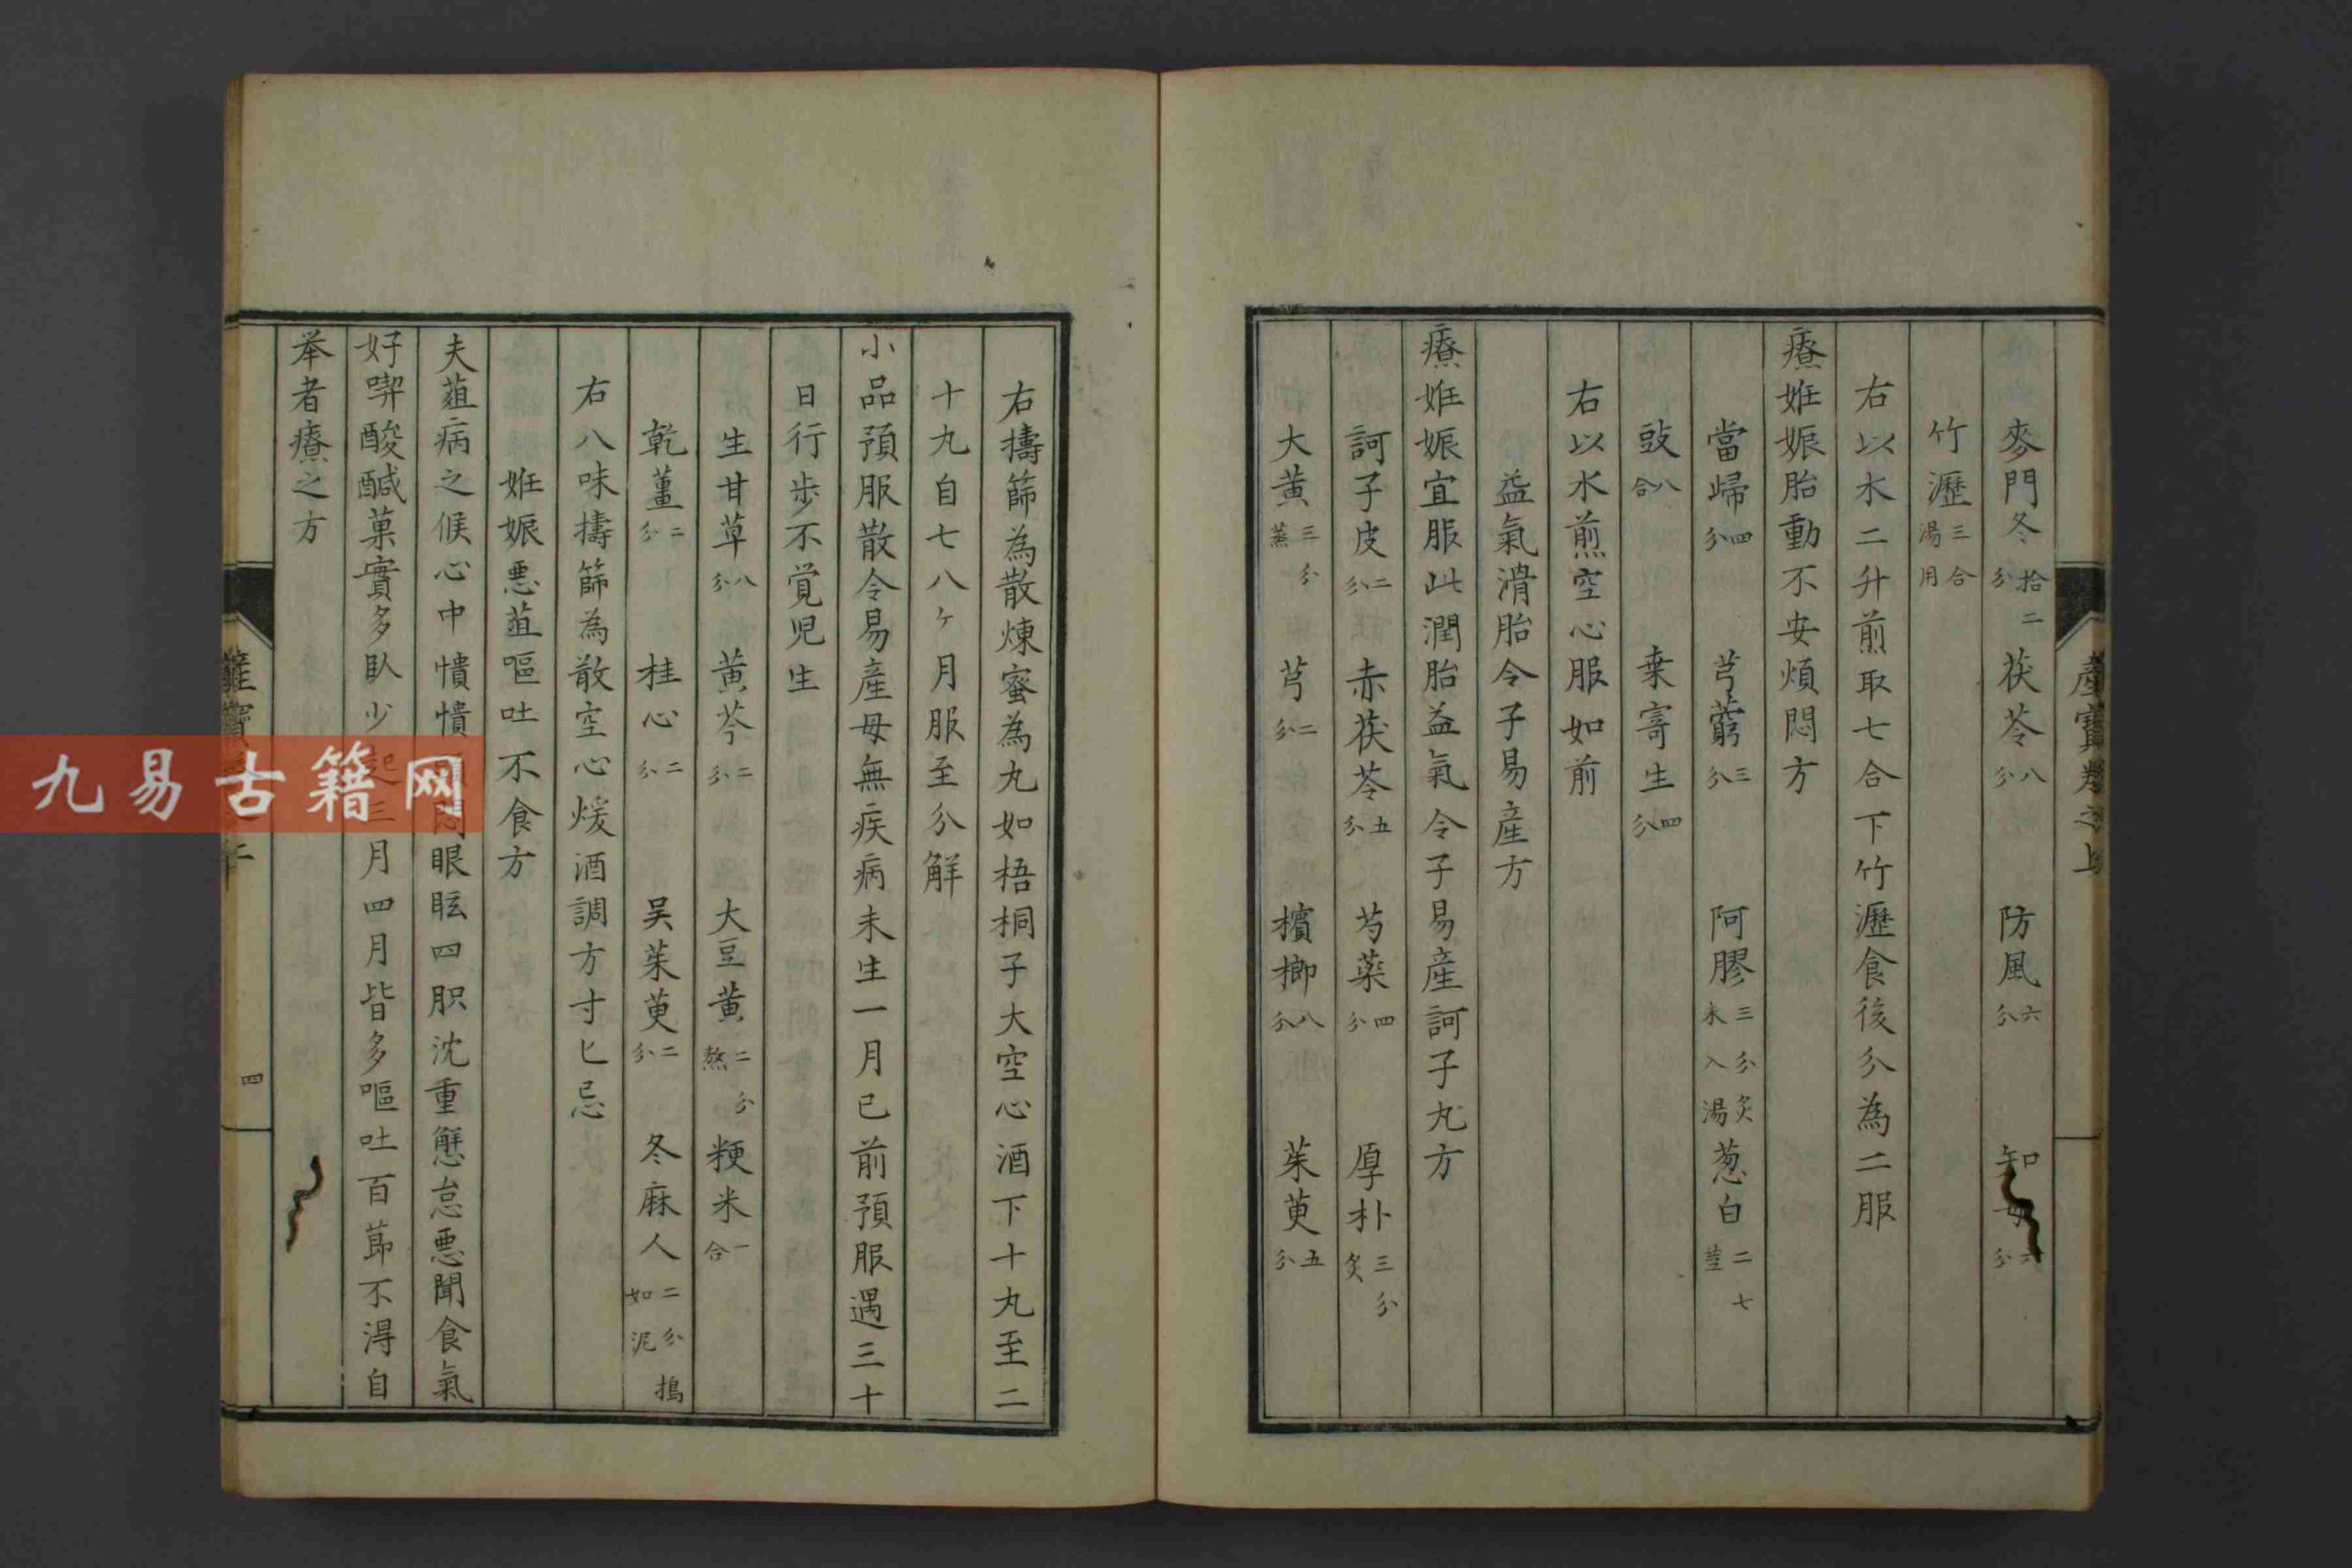 產寶卷之上
麥門冬拾二分 茯苓八分 防風六分 知母六分
竹瀝三合湯用
右以水二升煎取七合下竹瀝食後分為二服
療姙娠胎動不安煩悶方
當歸四分 芎藭三分 阿膠三分炙末入湯 葱白二七莖
豉八合 桒寄生四分
右以水煎空心服如前
益氣滑胎令子易產方
療姙娠宜服此潤胎益氣令子易產訶子丸方
訶子皮二分 赤茯苓五分 芍藥四分 厚朴三分炙
大黄三分蒸 芎二分 檳榔八分 茱萸五分
右擣篩為散煉蜜為丸如梧桐子大空心酒下十九至二
十九自七八ヶ月服至分解
小品預服散令易產母無疾病未生一月已前預服過三十
日行步不覚児生
生甘草八分 黄芩二分 大豆黄二分熬 粳米一合
乾薑二分 桂心二分 吴茱萸二分 冬麻人二分搗如泥
右八味擣篩為散空心煖酒調方寸匕忌
姙娠悪葅嘔吐不食方
夫葅病之候心中憒憒悶眼眩四肢沈重懈怠悪聞食氣
好喫酸醎菓實多臥少起三月四月皆多嘔吐百莭不淂自
举者療之方
四
九易古籍网